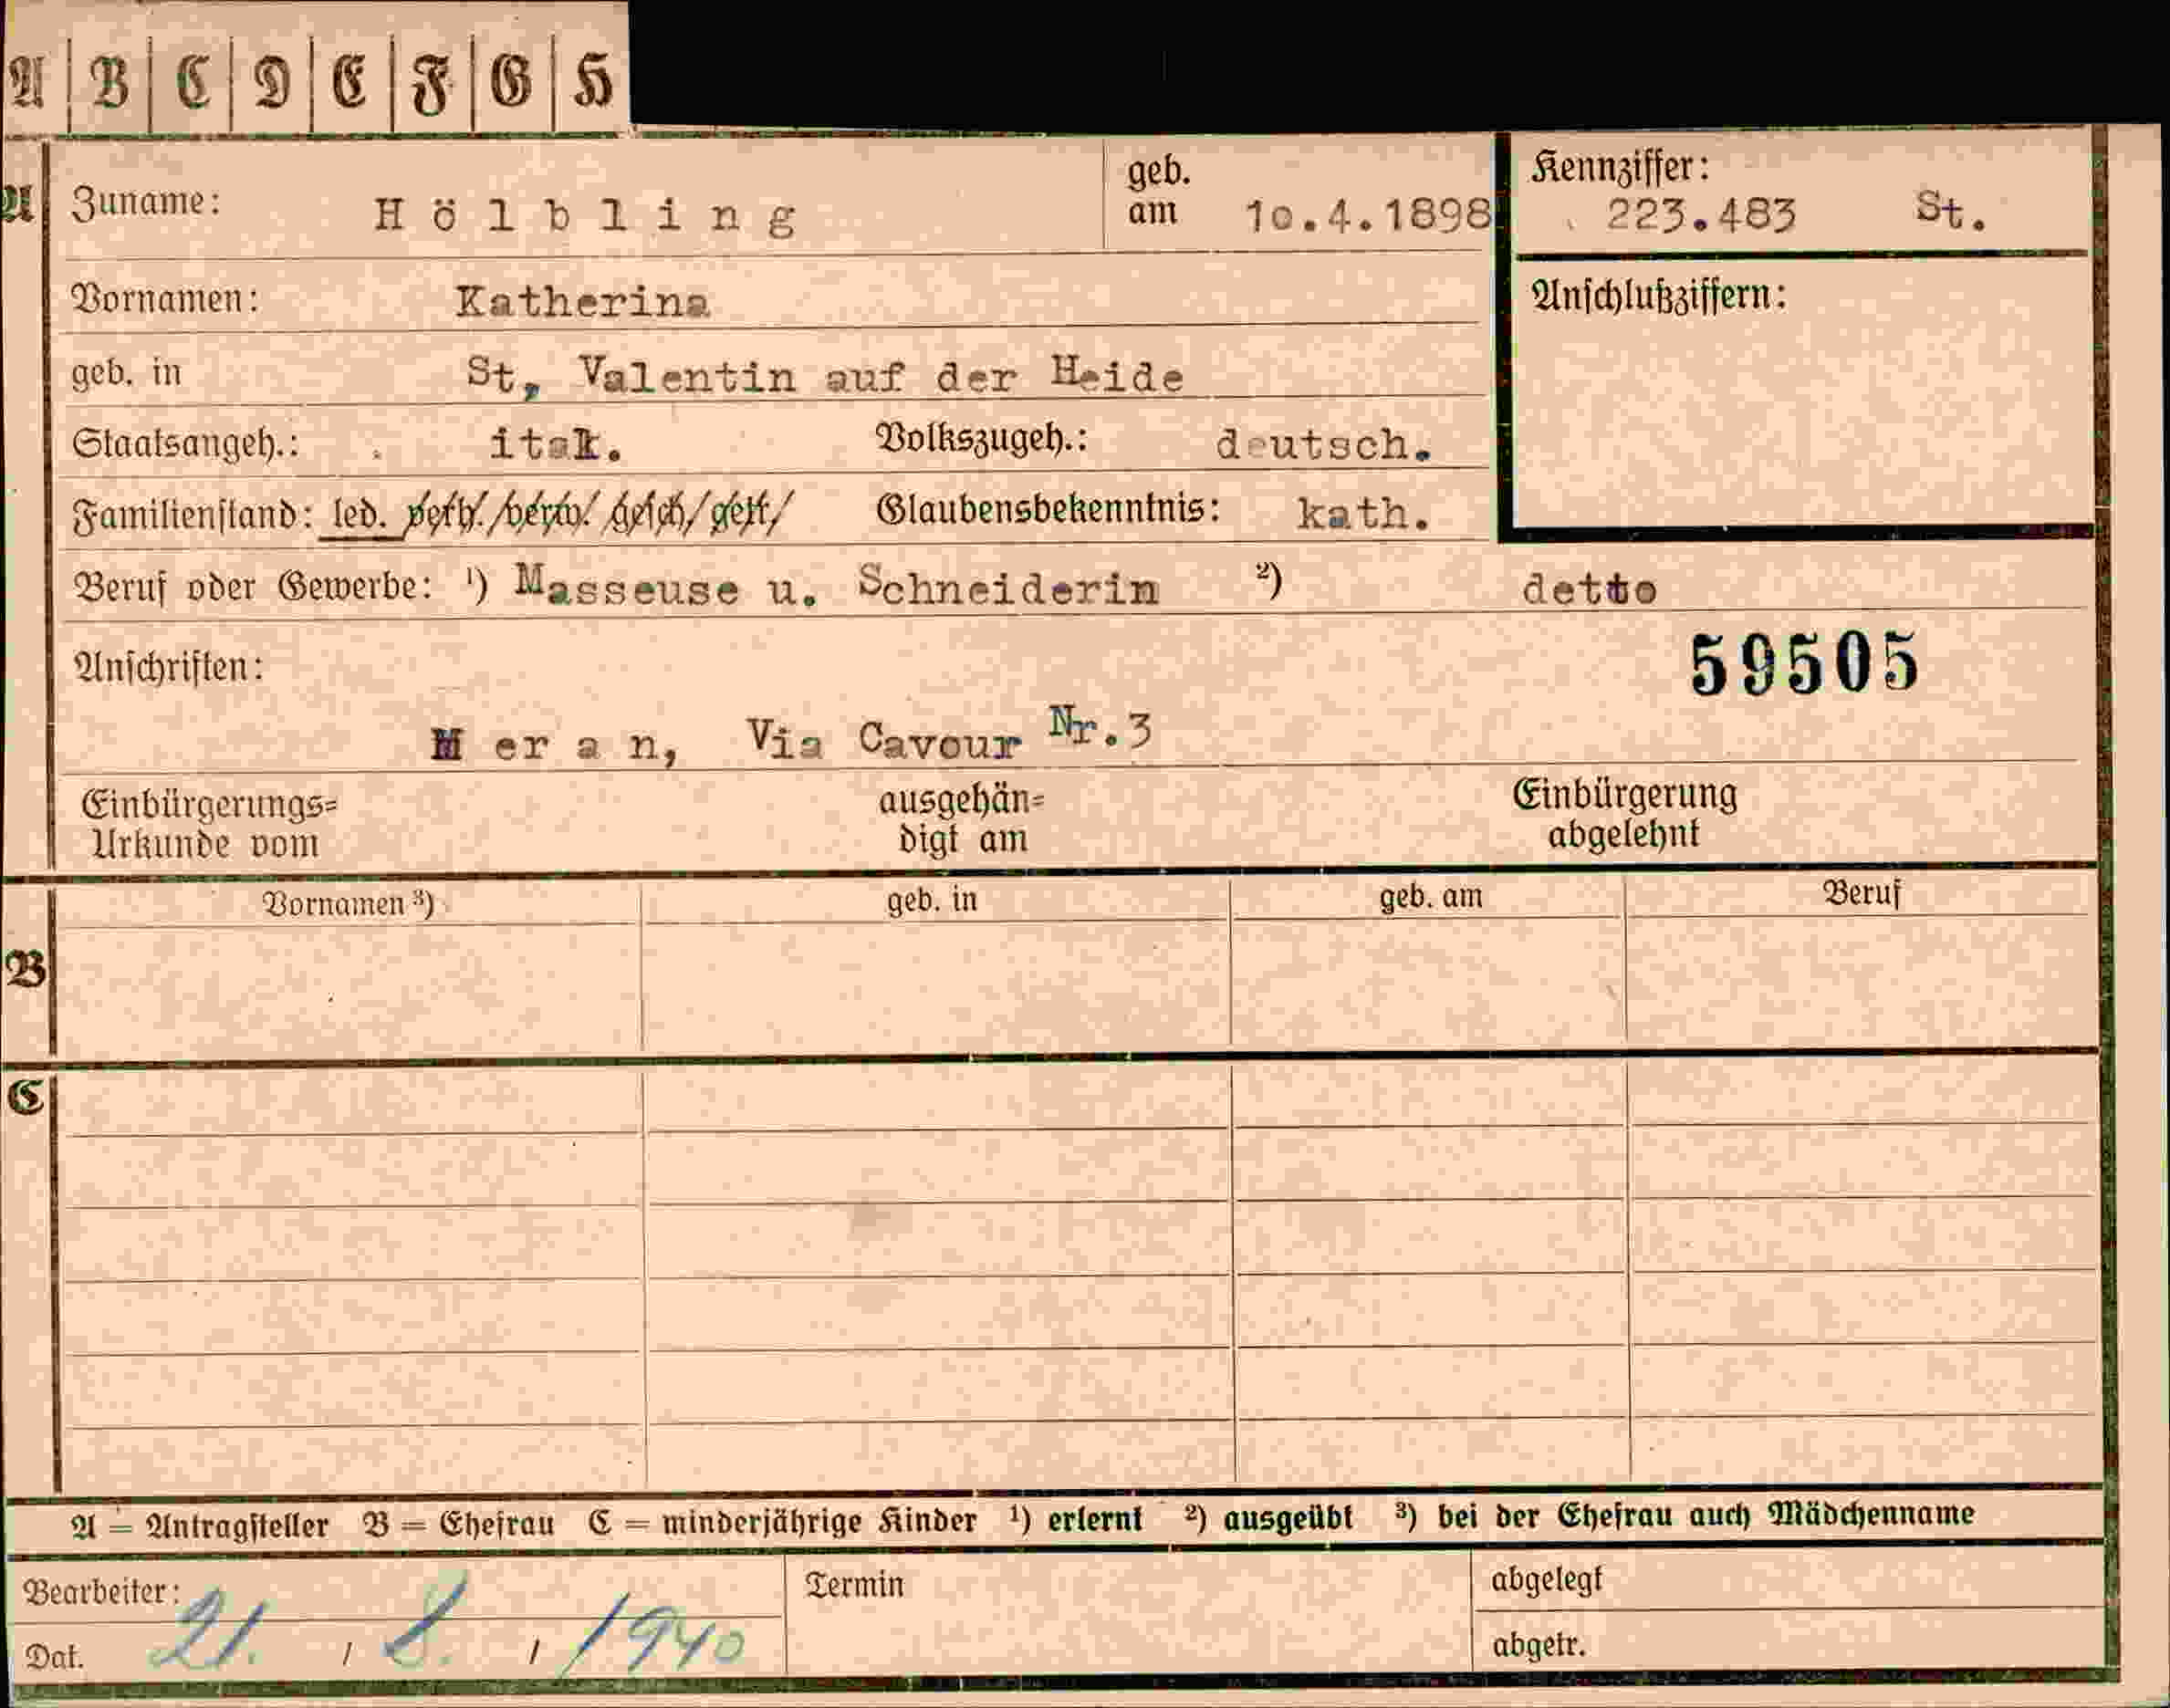 A | B | C | D | E | F | G | H
A Zuname: Hölbling geb. am 10.4.1898 Kennziffer: 223.483 St.
Vornamen: Katherina Anschlußziffern:
geb. in St, Valentin auf der Heide
Staatsangeh.: ital. Volkszugeh.: deutsch.
Familienstand: led. verh./verw./gesch./getr./ Glaubensbekenntnis: kath.
Beruf oder Gewerbe: ¹) Masseuse u. Schneiderin ²) detto
Anschriften: 59505
Meran, Via Cavour Nr.3
Einbürgerungs= ausgehän= Einbürgerung
Urkunde vom digt am abgelehnt
Vornamen ³) geb. in geb. am Beruf
B
C
A = Antragsteller B = Ehefrau C = minderjährige Kinder ¹) erlernt ²) ausgeübt ³) bei der Ehefrau auch Mädchenname
Bearbeiter: Termin abgelegt
Dat. 21. / 8. / 1940 abgetr.